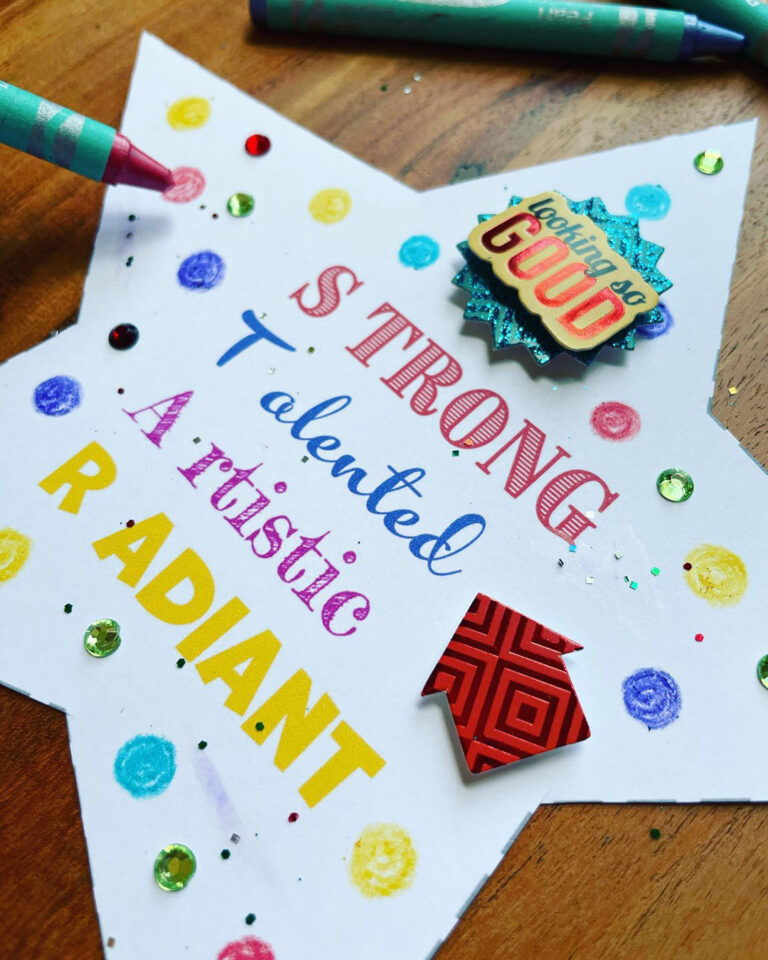 looking so
GOOD
S TRONG
T alented
A rtistic
R ADIANT